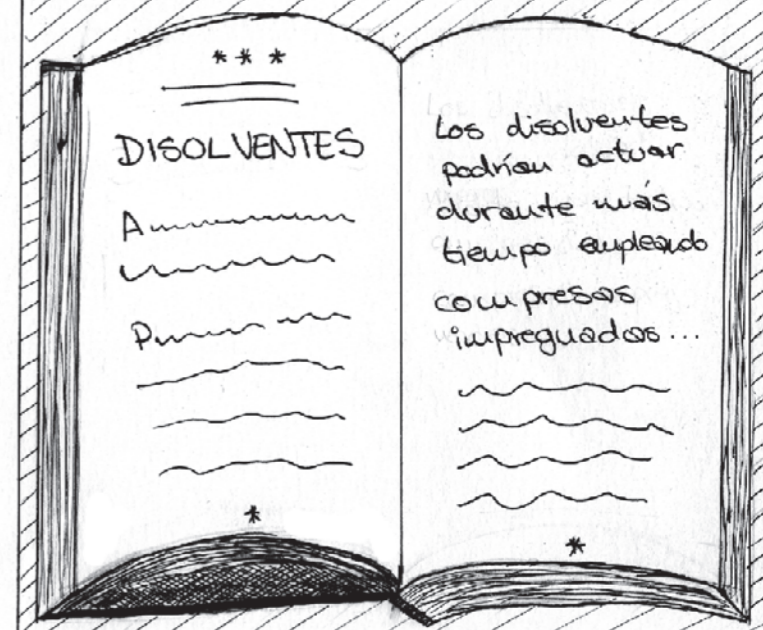 * * *
DISOLVENTES
A
P
*
Los disolventes
podrían actuar
durante más
tiempo empleando
compresas
impregnadas...
*